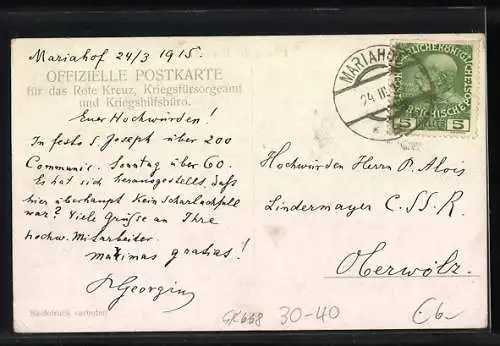 Mariahof 24/3 1915.
OFFIZIELLE POSTKARTE
für das Rote Kreuz, Kriegsfürsorgeamt
und Kriegshilfsbüro.
Euer Hochwürden!
In festo S. Joseph über 200
Communic. Sonntag über 60.
Es hat sich herausgestellt, daß
hier überhaupt kein Scharlachfall
war? Viele Grüße an Ihre
hochw. Mitarbeiter.
Maximas gratias!
P. Georgius
Nachdruck verboten
MARIAHOF
24. III
5 5
Hochwürden Herrn P. Alois
Lindermayer C. SS. R.
Oberwölz.
GK668 30-40